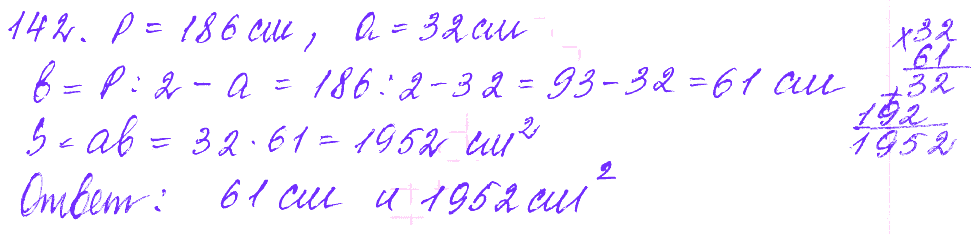 142. P = 186 см, a = 32 см
b = P : 2 - a = 186 : 2 - 32 = 93 - 32 = 61 см
S = ab = 32 · 61 = 1952 см²
Ответ: 61 см и 1952 см²
× 32
61
+ 32
192
1952